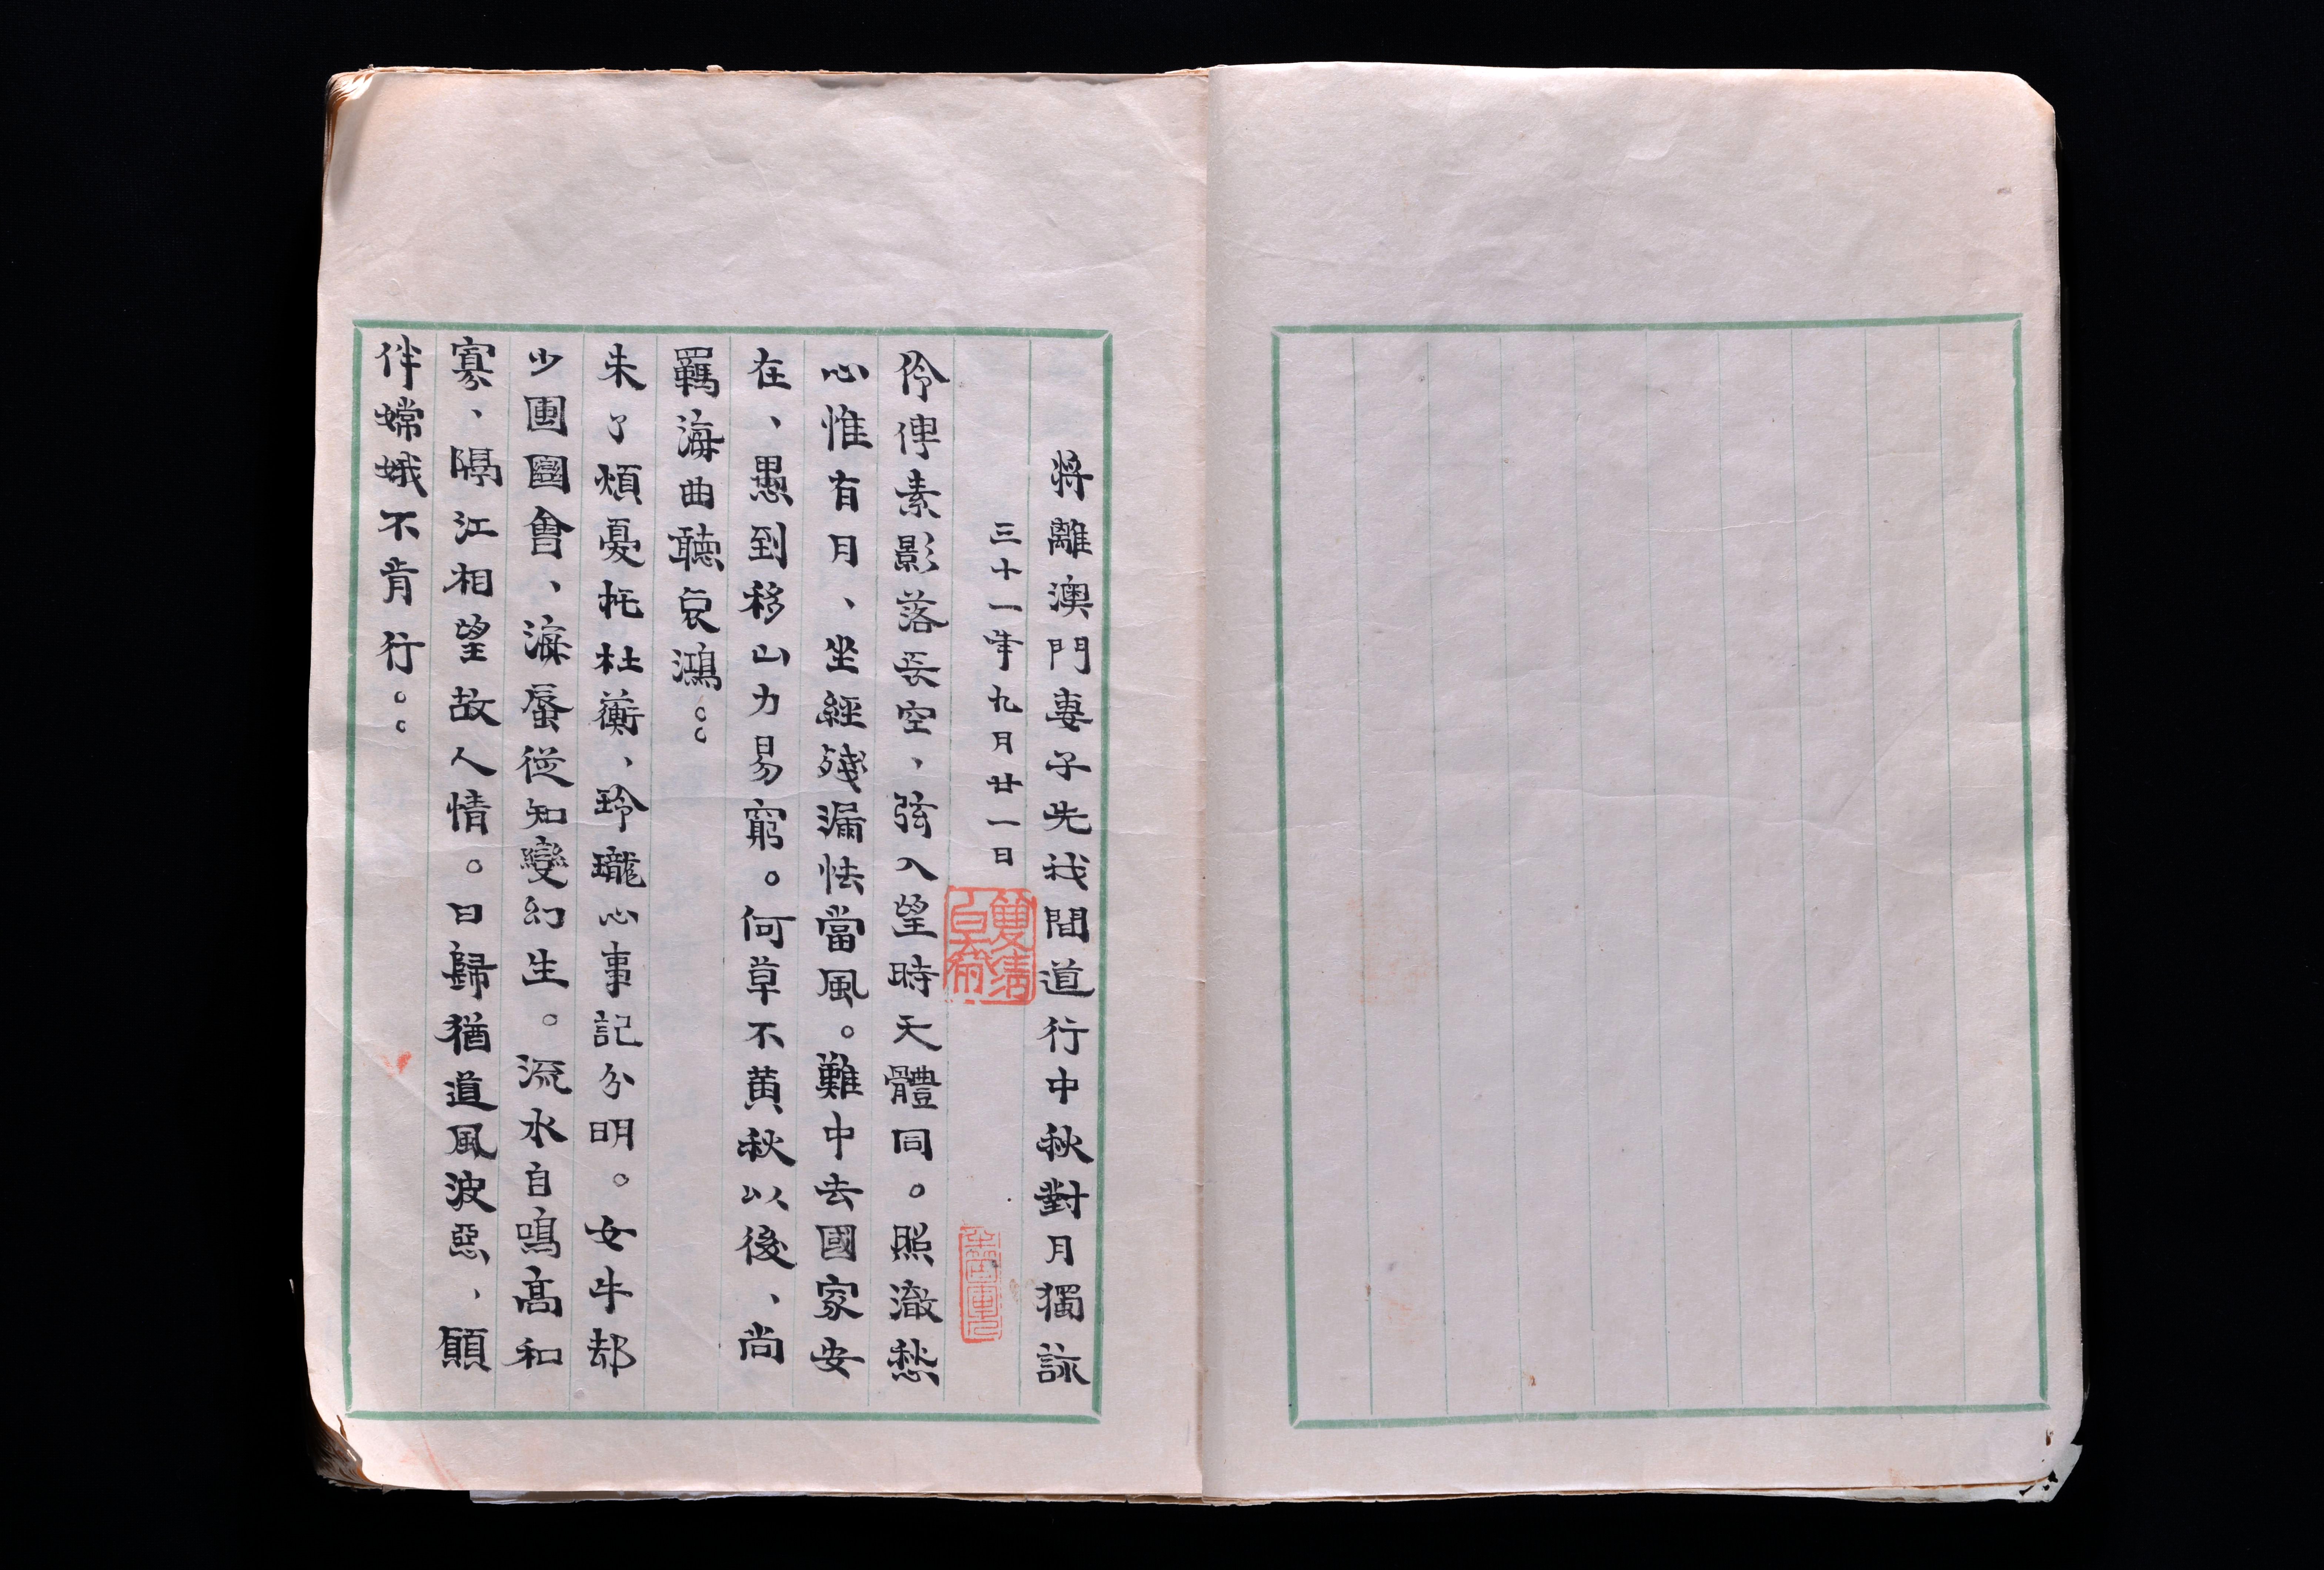 將離澳門妻子先我間道行中秋對月獨詠
三十一年九月廿一日
伶俜素影落長空、弦入望時天體同。照澈愁
心惟有月、坐經殘漏怯當風。難中去國家安
在、愚到移山力易窮。何草不黃秋以後、尚
羈海曲聽哀鴻。。
未了煩憂托杜蘅、玲瓏心事記分明。女牛却
少團圓會、海蜃從知變幻生。流水自鳴高和
寡、隔江相望故人情。曰歸猶道風波惡、願
伴嫦娥不肯行。。